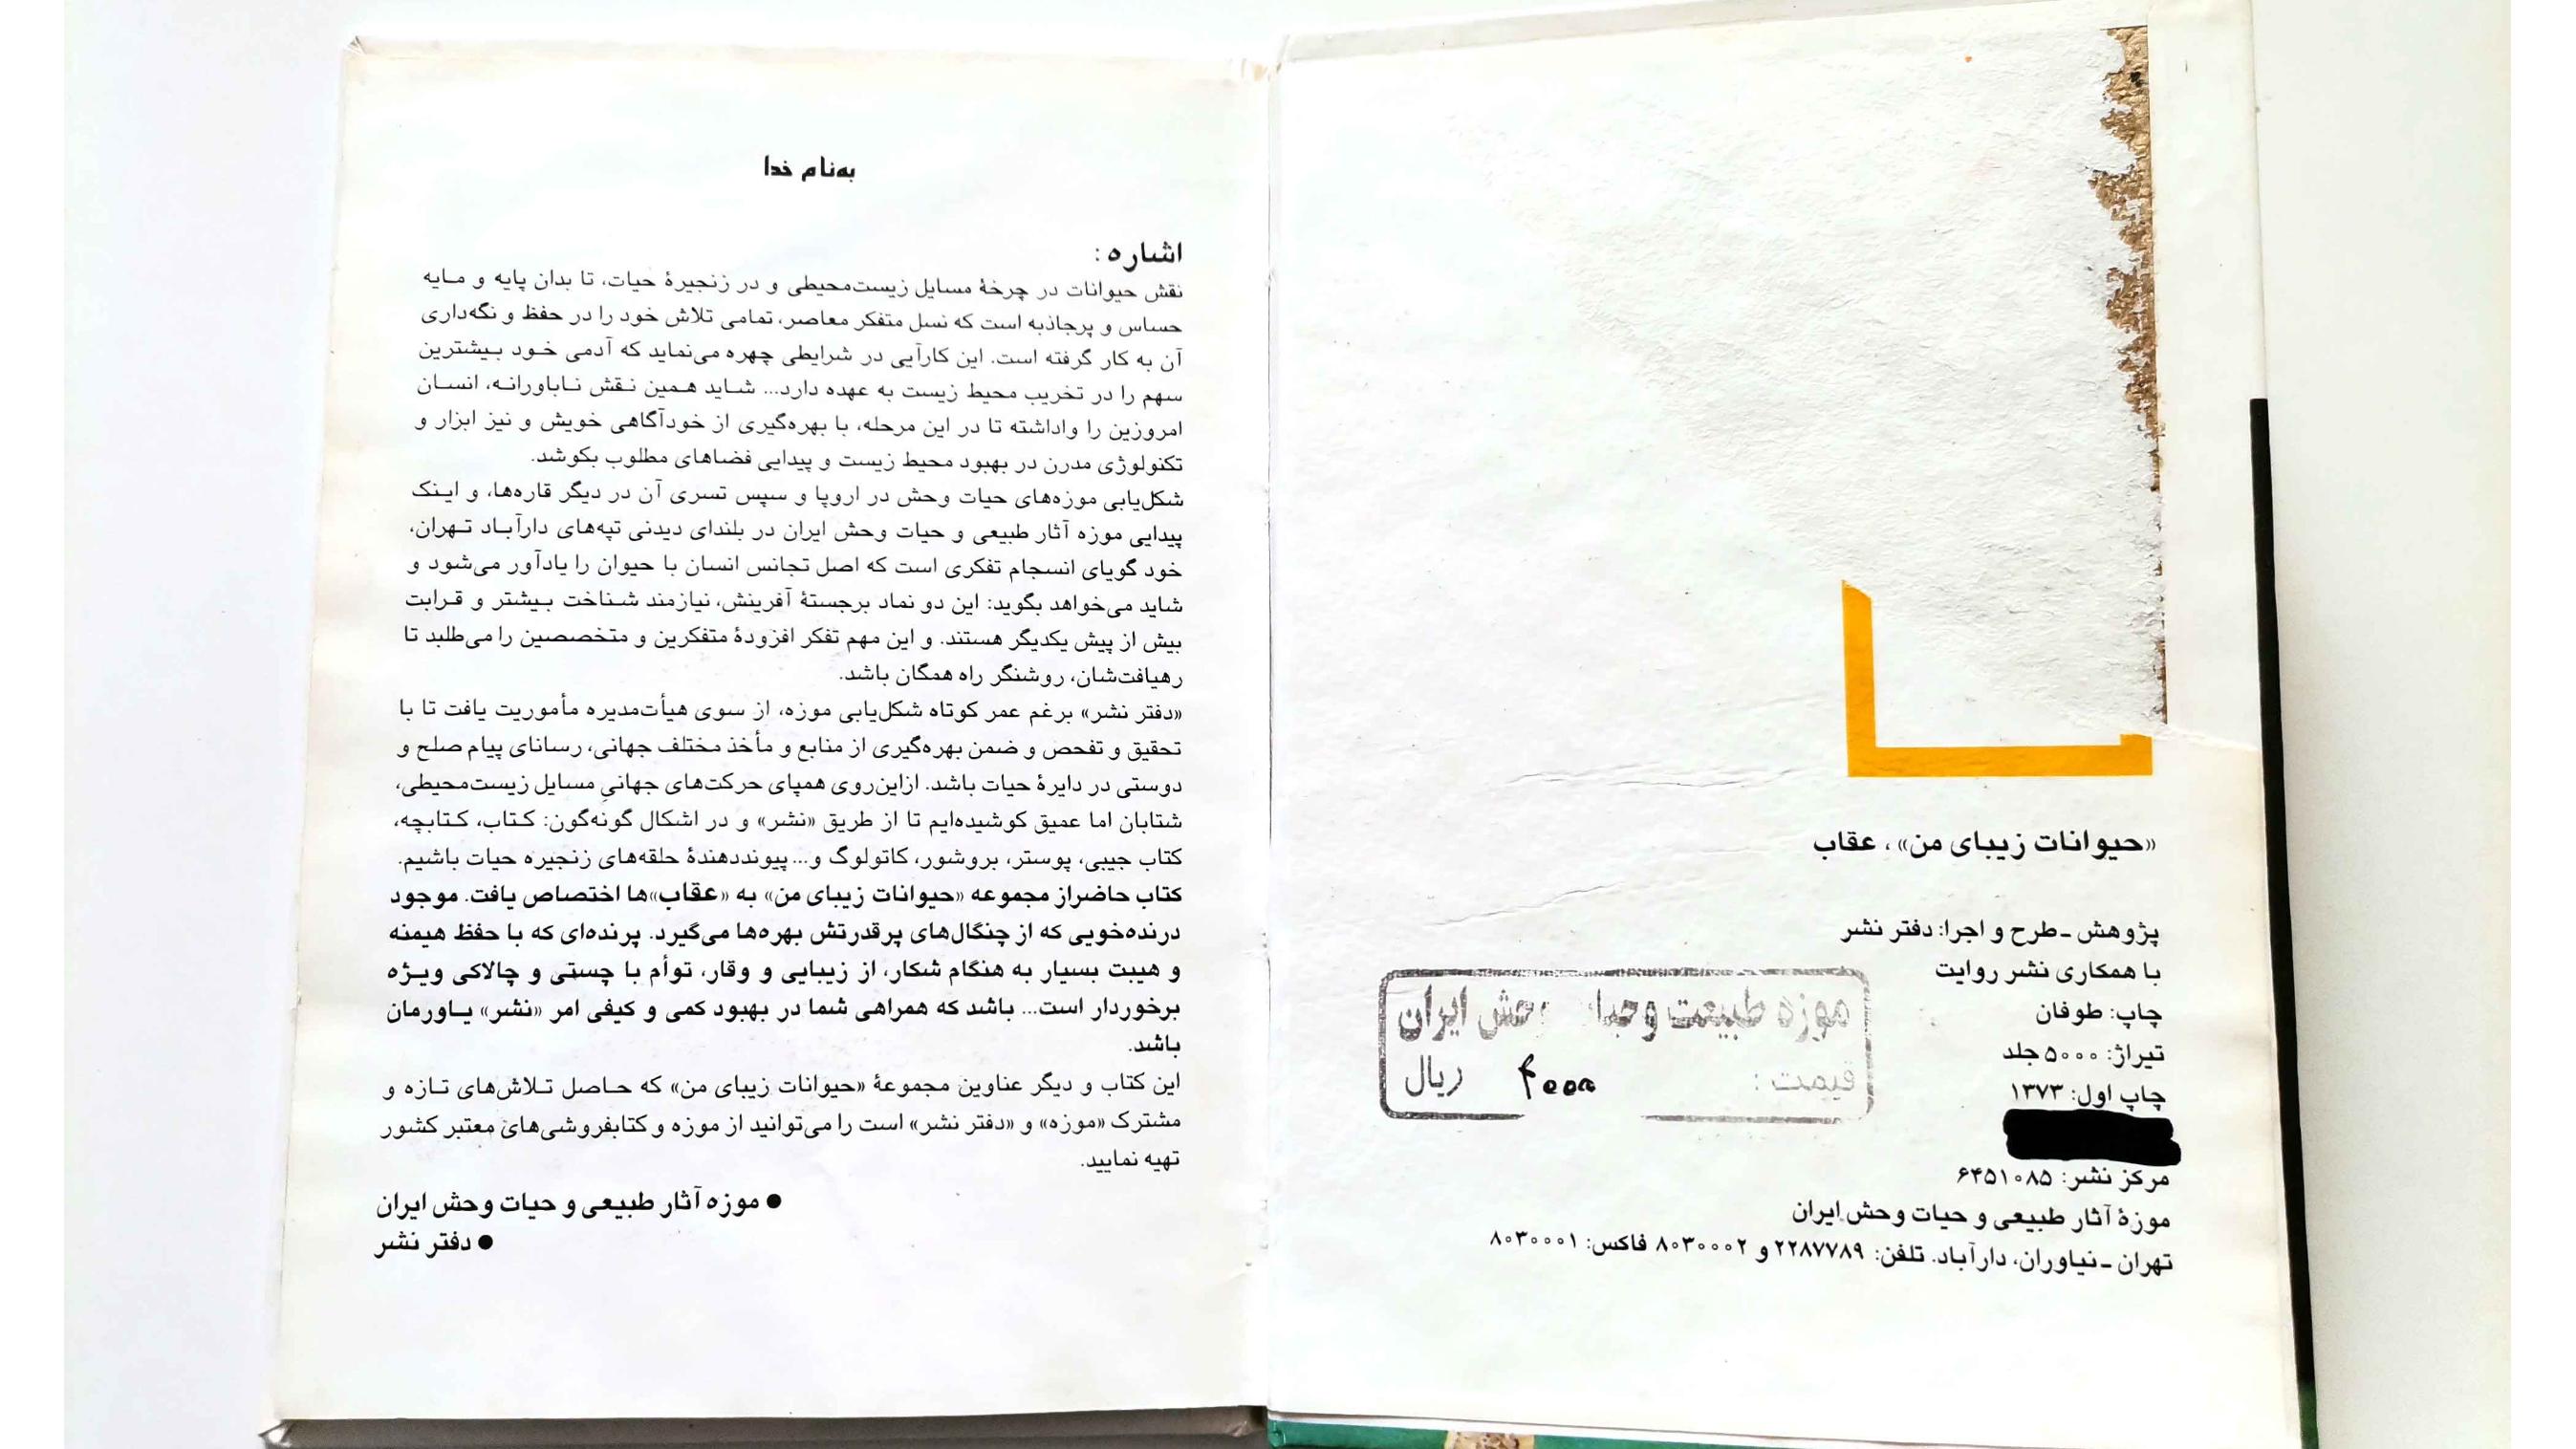 «حیوانات زیبای من»، عقاب
پژوهش ـ طرح و اجرا: دفتر نشر
با همکاری نشر روایت
چاپ: طوفان
تیراژ: ۵۰۰۰ جلد
چاپ اول: ۱۳۷۳
مرکز نشر: ۶۴۵۱۰۸۵
موزهٔ آثار طبیعی و حیات وحش ایران
تهران ـ نیاوران، دارآباد. تلفن: ۲۲۸۷۷۸۹ و ۸۰۳۰۰۰۲ فاکس: ۸۰۳۰۰۰۱
موزه طبیعت وحیات وحش ایران
قیمت: ۴۰۰۰ ریال
به‌نام خدا
اشاره:
نقش حیوانات در چرخهٔ مسایل زیست‌محیطی و در زنجیرهٔ حیات، تا بدان پایه و مایه
حساس و پرجاذبه است که نسل متفکر معاصر، تمامی تلاش خود را در حفظ و نگه‌داری
آن به کار گرفته است. این کارآیی در شرایطی چهره می‌نماید که آدمی خود بیشترین
سهم را در تخریب محیط زیست به عهده دارد... شاید همین نقش ناباورانه، انسان
امروزین را واداشته تا در این مرحله، با بهره‌گیری از خودآگاهی خویش و نیز ابزار و
تکنولوژی مدرن در بهبود محیط زیست و پیدایی فضاهای مطلوب بکوشد.
شکل‌یابی موزه‌های حیات وحش در اروپا و سپس تسری آن در دیگر قاره‌ها، و اینک
پیدایی موزه آثار طبیعی و حیات وحش ایران در بلندای دیدنی تپه‌های دارآباد تهران،
خود گویای انسجام تفکری است که اصل تجانس انسان با حیوان را یادآور می‌شود و
شاید می‌خواهد بگوید: این دو نماد برجستهٔ آفرینش، نیازمند شناخت بیشتر و قرابت
بیش از پیش یکدیگر هستند. و این مهم تفکر افزودهٔ متفکرین و متخصصین را می‌طلبد تا
رهیافت‌شان، روشنگر راه همگان باشد.
«دفتر نشر» برغم عمر کوتاه شکل‌یابی موزه، از سوی هیأت‌مدیره مأموریت یافت تا با
تحقیق و تفحص و ضمن بهره‌گیری از منابع و مأخذ مختلف جهانی، رسانای پیام صلح و
دوستی در دایرهٔ حیات باشد. ازاین‌روی همپای حرکت‌های جهانیِ مسایل زیست‌محیطی،
شتابان اما عمیق کوشیده‌ایم تا از طریق «نشر» و در اشکال گونه‌گون: کتاب، کتابچه،
کتاب جیبی، پوستر، بروشور، کاتولوگ و... پیونددهندهٔ حلقه‌های زنجیره حیات باشیم.
کتاب حاضراز مجموعه «حیوانات زیبای من» به «عقاب»ها اختصاص یافت. موجود
درنده‌خویی که از چنگال‌های پرقدرتش بهره‌ها می‌گیرد. پرنده‌ای که با حفظ هیمنه
و هیبت بسیار به هنگام شکار، از زیبایی و وقار، توأم با چستی و چالاکی ویژه
برخوردار است... باشد که همراهی شما در بهبود کمی و کیفی امر «نشر» یاورمان
باشد.
این کتاب و دیگر عناوین مجموعهٔ «حیوانات زیبای من» که حاصل تلاش‌های تازه و
مشترک «موزه» و «دفتر نشر» است را می‌توانید از موزه و کتابفروشی‌های معتبر کشور
تهیه نمایید.
● موزه آثار طبیعی و حیات وحش ایران
● دفتر نشر